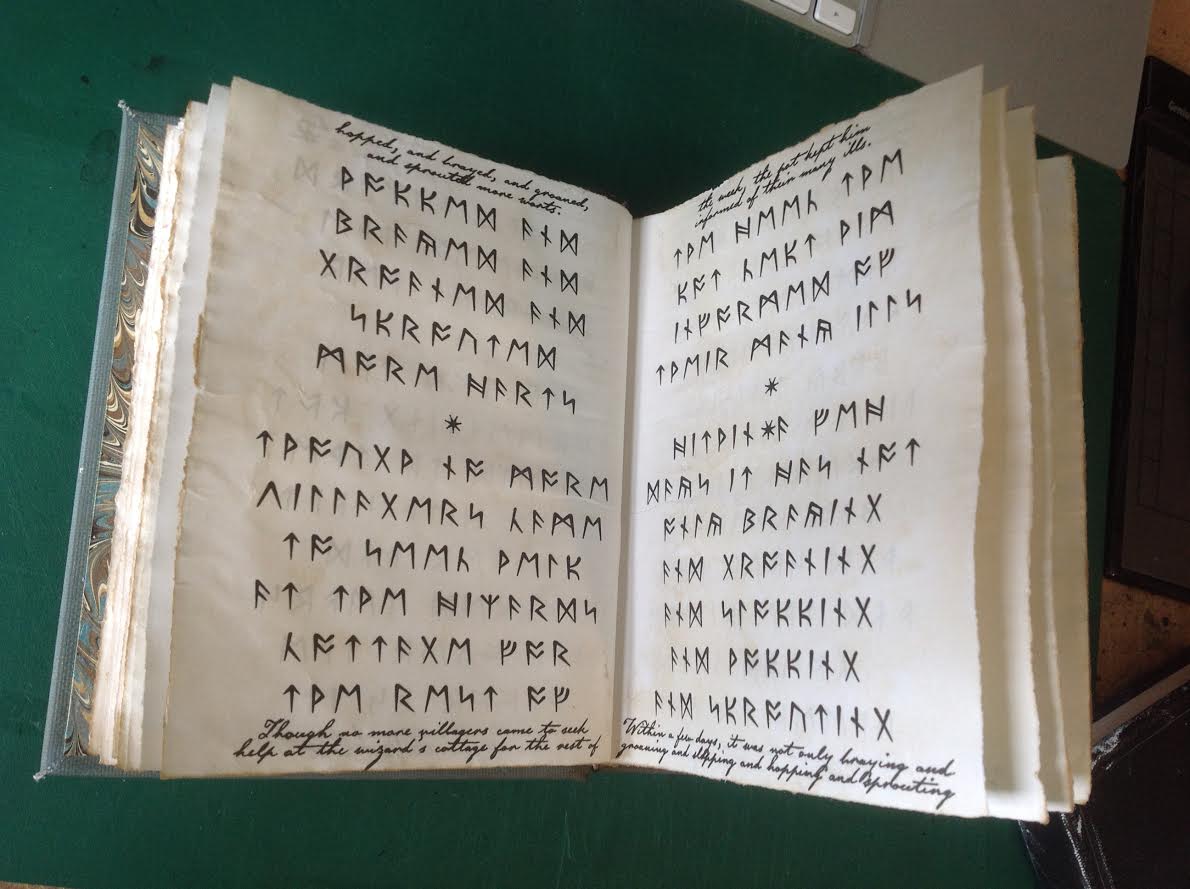 hopped, and brayed, and groaned,
and sprouted more warts.
ᚦᚩᛕᛕᛖᛞ ᚨᚾᛞ
ᛒᚱᚨᚤᛖᛞ ᚨᚾᛞ
ᚷᚱᚩᚨᚾᛖᛞ ᚨᚾᛞ
ᛋᛕᚱᚩᚢᛏᛖᛞ
ᛗᚩᚱᛖ ᚺᚨᚱᛏᛋ
ᛏᚦᚩᚢᚷᚦ ᚾᚩ ᛗᚩᚱᛖ
ᚡᛁᛚᛚᚨᚷᛖᚱᛋ ᚳᚨᛗᛖ
ᛏᚩ ᛋᛖᛖᚳ ᚦᛖᛚᛕ
ᚨᛏ ᛏᚦᛖ ᚺᛁᛉᚨᚱᛞᛋ
ᚳᚩᛏᛏᚨᚷᛖ ᚠᚩᚱ
ᛏᚦᛖ ᚱᛖᛋᛏ ᚩᚠ
Though no more villagers came to seek
help at the wizard's cottage for the rest of
the week, the pot kept him
informed of their many ills.
ᛏᚦᛖ ᚺᛖᛖᚳ ᛏᚦᛖ
ᛕᚩᛏ ᚳᛖᛕᛏ ᚦᛁᛗ
ᛁᚾᚠᚩᚱᛗᛖᛞ ᚩᚠ
ᛏᚦᛖᛁᚱ ᛗᚨᚾᚤ ᛁᛚᛚᛋ
ᚺᛁᛏᚦᛁᚾ*ᚨ ᚠᛖᚺ
ᛞᚨᚤᛋ ᛁᛏ ᚺᚨᛋ ᚾᚩᛏ
ᚩᚾᛚᚤ ᛒᚱᚨᚤᛁᚾᚷ
ᚨᚾᛞ ᚷᚱᚩᚨᚾᛁᚾᚷ
ᚨᚾᛞ ᛋᛚᚩᛕᛕᛁᚾᚷ
ᚨᚾᛞ ᚦᚩᛕᛕᛁᚾᚷ
ᚨᚾᛞ ᛋᛕᚱᚩᚢᛏᛁᚾᚷ
Within a few days, it was not only braying and
groaning and slopping and hopping and sprouting